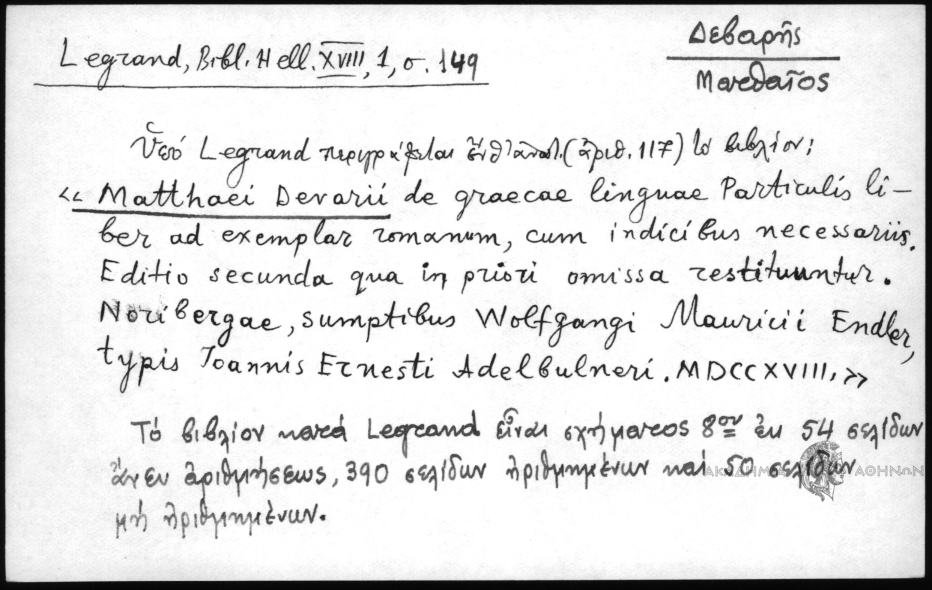 Legrand, Bibl. Hell. XVIII, 1, σ. 149
Δεβαρῆς
Ματθαῖος
Ὑπό Legrand περιγράφεται (ἀριθ. 117) τό βιβλίον:
«Matthaei Devarii de graecae linguae Particulis li-
ber ad exemplar romanum, cum indicibus necessariis.
Editio secunda qua in priori omissa restituuntur.
Noribergae, sumptibus Wolfgangi Mauricii Endler,
typis Ioannis Ernesti Adelbulneri. MDCCXVIII.»
Τό βιβλίον κατά Legrand εἶναι σχήματος 8ου ἐκ 54 σελίδων
ἄνευ ἀριθμήσεως, 390 σελίδων ἠριθμημένων καί 50 σελίδων
μή ἠριθμημένων.
ΑΚΑΔΗΜΙΑ ΑΘΗΝΩΝ